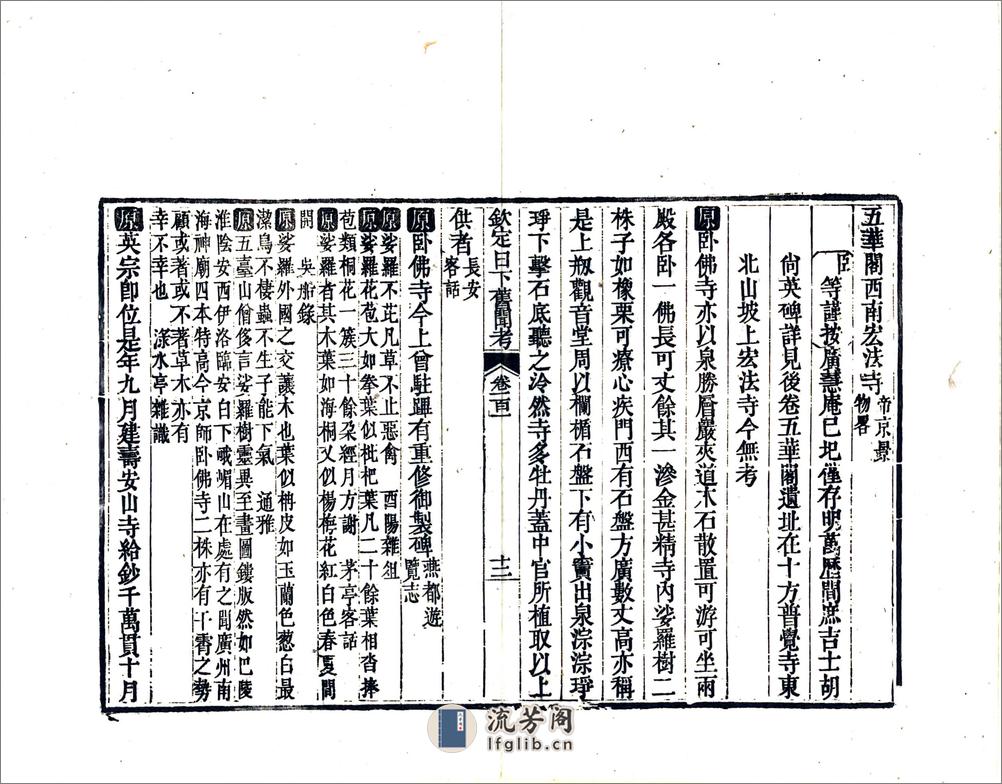 五華閣西南宏法寺帝京景
物畧
臣等謹按廣慧庵已圯僅存明萬歷間庶吉士胡
尙英碑詳見後卷五華閣遺址在十方普覺寺東
北山坡上宏法寺今無考
原卧佛寺亦以泉勝層嚴夾道木石散置可游可坐兩
殿各卧一佛長可丈餘其一滲金甚精寺內娑羅樹二
株子如橡栗可療心疾門西有石盤方廣數丈高亦稱
是上刱觀音堂周以欄楯石盤下有小竇出泉淙淙琤
琤下擊石底聽之泠然寺多牡丹蓋中官所植取以上
欽定日下舊聞考 卷一百一 十二
供者長安
客話
原卧佛寺今上曾駐蹕有重修御製碑燕都遊
覽志
原娑羅不芘凡草不止惡禽 酉陽雜俎
原娑羅花苞大如拳葉似枇杷葉凡二十餘葉相沓捧
苞類桐花一簇三十餘朶經月方謝 茅亭客話
原娑羅者其木葉如海桐又似楊梅花紅白色春夏間
開 吳船錄
原娑羅外國之交讓木也葉似枏皮如玉蘭色葱白最
潔鳥不棲蟲不生子能下氣 通雅
原五臺山僧侈言娑羅樹靈異至畫圖鏤版然如巴陵
淮陰安西伊洛臨安白下峨嵋山在處有之聞廣州南
海神廟四本特高今京師卧佛寺二株亦有干霄之勢
顧或著或不著草木亦有
幸不幸也 淥水亭雜識
原英宗卽位是年九月建壽安山寺給鈔千萬貫十月
流芳阁
lfglib.cn